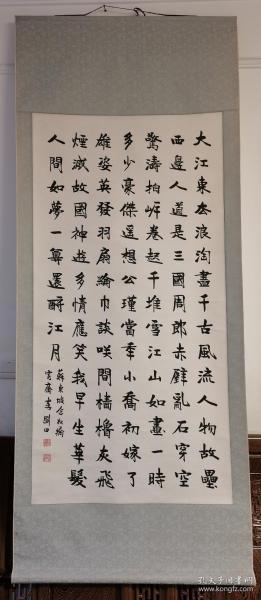 大江東去浪淘盡千古風流人物故壘
西邊人道是三國周郎赤壁亂石穿空
驚濤拍岸卷起千堆雪江山如畫一時
多少豪傑遥想公瑾當年小喬初嫁了
雄姿英發羽扇綸巾談咲間檣櫓灰飛
煙滅故國神遊多情應笑我早生華髮
人間如夢一尊還酹江月
蘇東坡念奴嬌
孔夫子旧书网